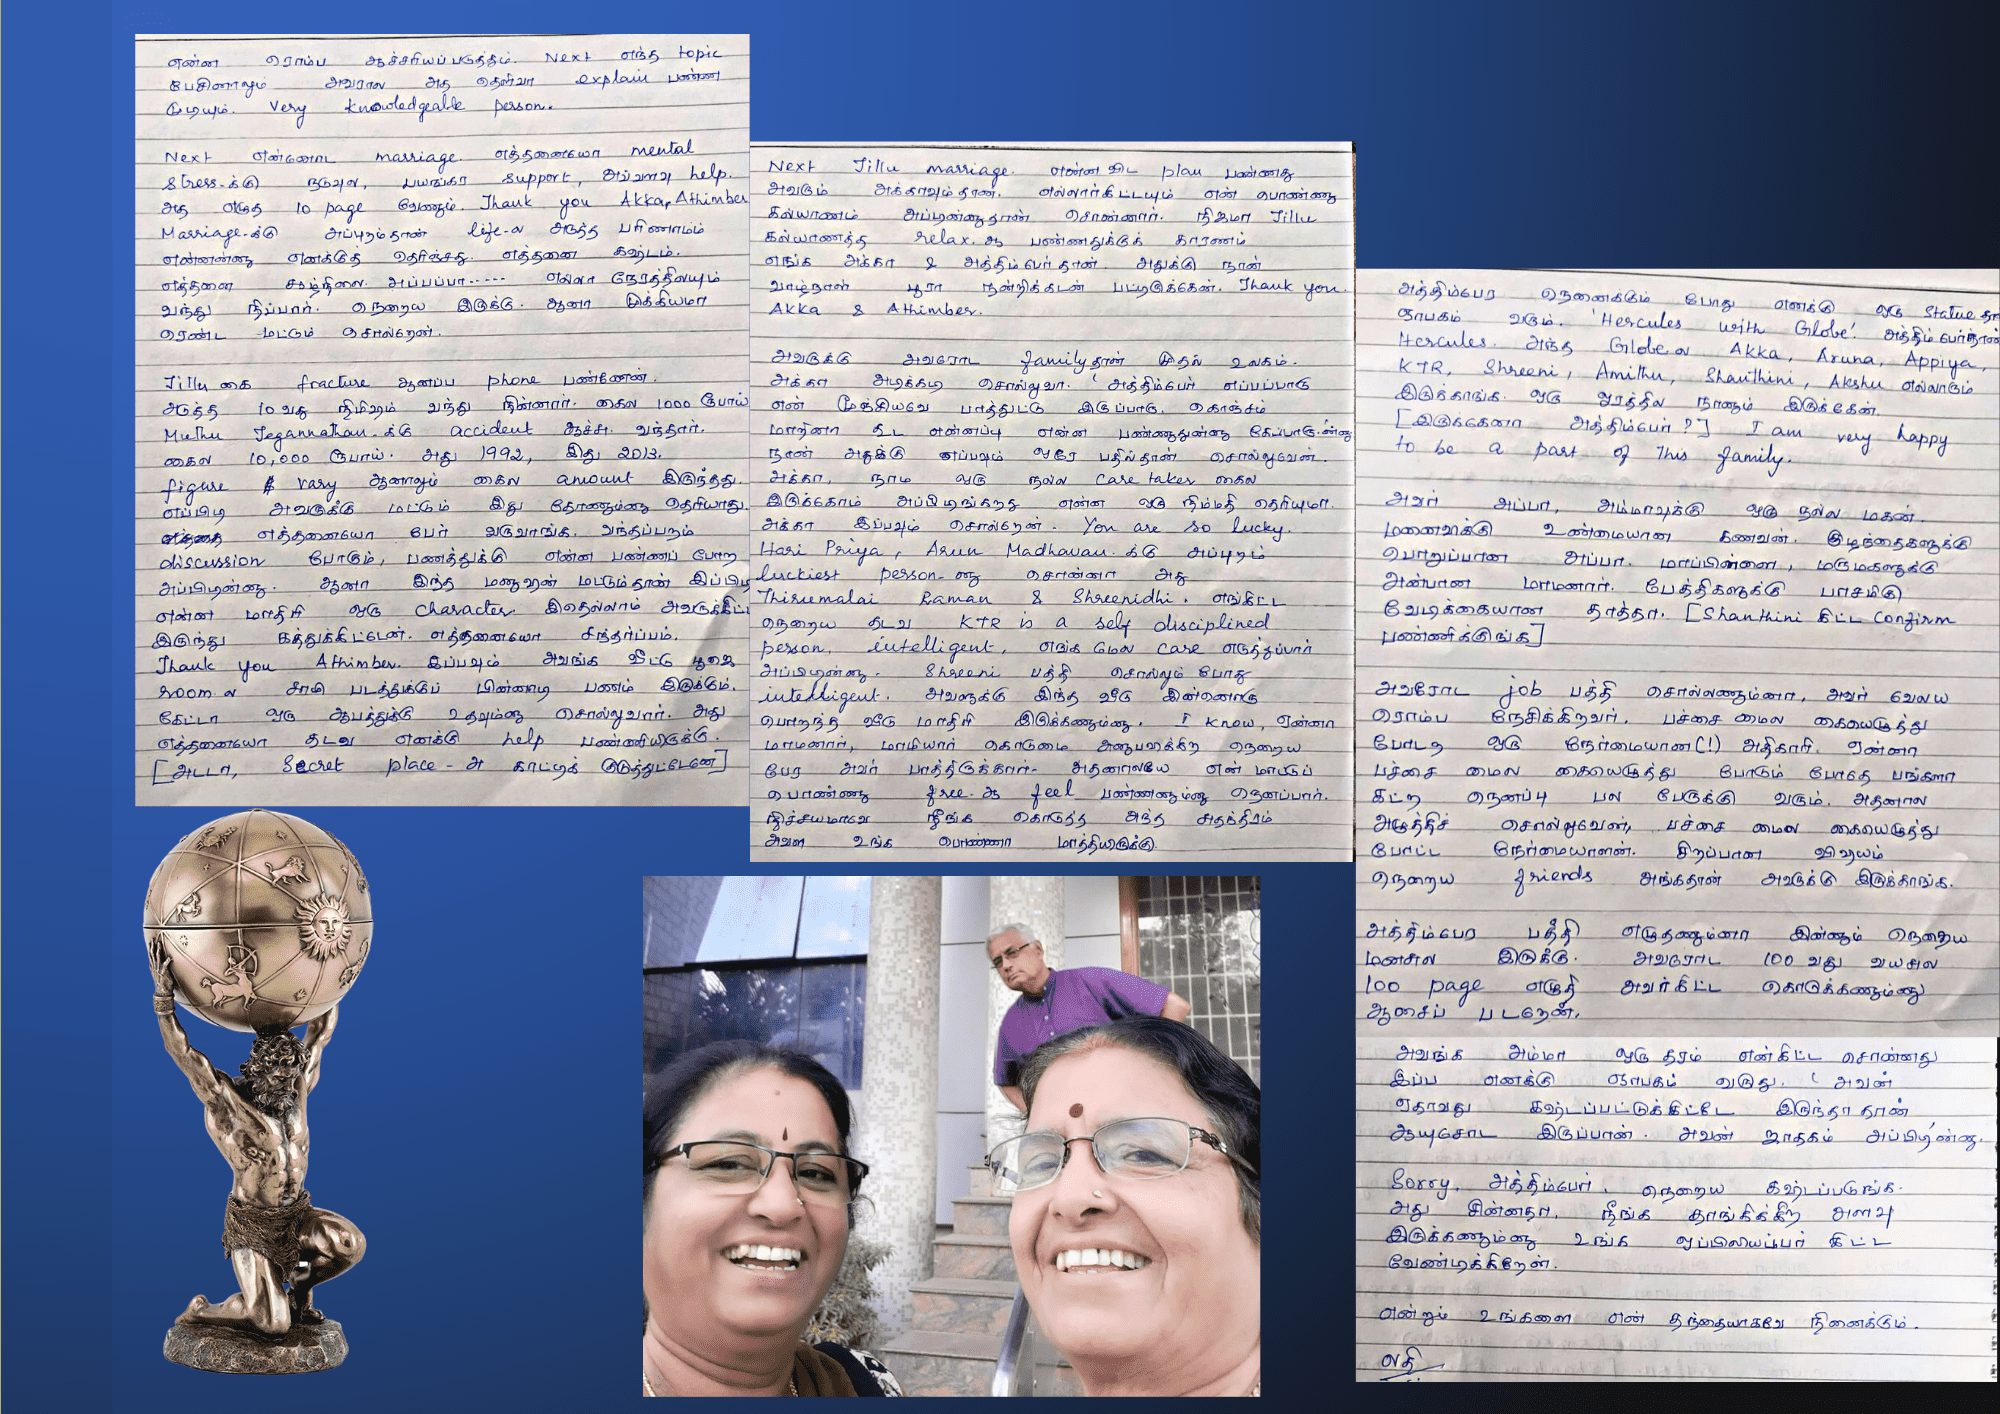 என்ன ரொம்ப ஆச்சரியப்படுத்தும். Next எந்த topic
பேசினாலும் அவரால அத தெளிவா explain பண்ண
முடியும். Very knowledgeable person.
Next என்னோட marriage. எத்தனையோ mental
stress-க்கு நடுவுல, பயங்கர support, அவ்வளவு help.
அத எழுத 10 page வேணும். Thank you Akka, Athimber
Marriage-க்கு அப்புறம்தான் life-ல அடுத்த பரிணாமம்
என்னன்னு எனக்குத் தெரிஞ்சது. எத்தனை கஷ்டம்.
எத்தனை சூழ்நிலை. அப்பப்பா..... எல்லா நேரத்திலயும்
வந்து நிப்பார். நெறைய இருக்கு. ஆனா முக்கியமா
ரெண்ட மட்டும் சொல்றேன்.
Jillu கை fracture ஆனப்ப phone பண்ணேன்.
அடுத்த 10 வது நிமிஷம் வந்து நின்னார். கைல 1000 ரூபாய்
Muthu Jegannathan-க்கு accident ஆச்சு. வந்தார்.
கைல 10,000 ரூபாய். அது 1992, இது 2013.
figure vary ஆனாலும் கைல amount இருந்தது.
எப்பிடி அவருக்கு மட்டும் இது தோணும்னு தெரியாது.
எத்தனையோ பேர் வருவாங்க. வந்தப்புறம்
discussion போடும், பணத்துக்கு என்ன பண்ணப் போற
அப்பிடின்னு. ஆனா இந்த மனுஷன் மட்டும்தான் இப்பிடி
என்ன மாதிரி ஒரு character. இதெல்லாம் அவருக்கிட்ட
இருந்து கத்துக்கிட்டேன். எத்தனையோ சந்தர்ப்பம்.
Thank you Athimber. இப்பவும் அவங்க வீட்டு பூஜை
room ல சாமி படத்துக்குப் பின்னாடி பணம் இருக்கும்.
கேட்டா ஒரு ஆபத்துக்கு உதவும்னு சொல்லுவார். அது
எத்தனையோ தடவ எனக்கு help பண்ணியிருக்கு.
[அடடா, Secret place-அ காட்டிக் குடுத்துட்டேனே]
Next Jillu marriage. என்ன விட plan பண்ணது
அவரும் அக்காவும்தான். எல்லார்கிட்டயும் என் பொண்ணு
கல்யாணம் அப்டின்னுதான் சொன்னார். நிஜமா Jillu
கல்யாணத்த relax-ஆ பண்ணதுக்குக் காரணம்
எங்க அக்கா & அத்திம்பேர் தான். அதுக்கு நான்
வாழ்நாள் பூரா நன்றிக்கடன் பட்டிருக்கேன். Thank you.
Akka & Athimber.
அவருக்கு அவரோட family தான் முதல் உலகம்.
அக்கா அடிக்கடி சொல்லுவா. 'அத்திம்பேர் எப்பப்பாரு
என் மூஞ்சியவே பாத்துட்டு இருப்பாரு. கொஞ்சம்
மாறினா கூட என்னப்டி என்ன பண்ணுதுன்னு கேப்பாரு'ன்னு
நான் அதுக்கு எப்பவும் ஒரே பதில்தான் சொல்லுவேன்.
அக்கா, நாம ஒரு நல்ல care taker கைல
இருக்கோம் அப்பிடிங்கறத என்ன ஒரு நிம்மதி தெரியுமா.
அக்கா இப்பவும் சொல்றேன். You are so lucky.
Hari Priya, Arun Madhavan-க்கு அப்புறம்
luckiest person-னு சொன்னா அது
Thirumalai Raman & Shreenidhi. எங்கிட்ட
நெறைய தடவ KTR is a self disciplined
person, intelligent, எங்க மேல care எடுத்துப்பார்
அப்பிடின்னு. Shreeni பத்தி சொல்லும் போது
intelligent. அவளுக்கு இந்த வீடு இன்னொரு
பொறந்த வீடு மாதிரி இருக்கணும்னு. I know, ஏன்னா
மாமனார், மாமியார் கொடுமை அனுபவிக்கிற நெறைய
பேர அவர் பாத்திருக்கார். அதனாலயே என் மாட்டுப்
பொண்ணு free-ஆ feel பண்ணணும்னு நெனப்பார்.
நிச்சயமாவே நீங்க கொடுத்த அந்த சுதந்திரம்
அவள உங்க பொண்ணா மாத்தியிருக்கு.
அத்திம்பேர நெனைக்கும் போது எனக்கு ஒரு Statue தா
ஞாபகம் வரும். 'Hercules with Globe'. அத்திம்பேர்தான்
Hercules. அந்த Globe ல Akka, Aruna, Appiya,
KTR, Shreeni, Amithu, Shanthini, Akshu எல்லாரும்
இருக்காங்க. ஒரு ஓரத்தில நானும் இருக்கேன்.
[இருக்கேனா அத்திம்பேர்?] I am very happy
to be a part of this family.
அவர் அப்பா, அம்மாவுக்கு ஒரு நல்ல மகன்.
மனைவிக்கு உண்மையான கணவன். குழந்தைகளுக்கு
பொறுப்பான அப்பா. மாப்பிள்ளை, மருமகளுக்கு
அன்பான மாமனார். பேத்திகளுக்கு பாசமிகு
வேடிக்கையான தாத்தா. [Shanthini கிட்ட confirm
பண்ணிக்குங்க]
அவரோட job பத்தி சொல்லணும்னா, அவர் வேலய
ரொம்ப நேசிக்கிறவர். பச்சை மைல கையெழுத்து
போடற ஒரு நேர்மையான(!) அதிகாரி. ஏன்னா
பச்சை மைல கையெழுத்து போடும் போதே பங்களா
கட்ற நெனப்பு பல பேருக்கு வரும். அதனால
அழுத்திச் சொல்லுவேன், பச்சை மைல கையெழுத்து
போட்ட நேர்மையாளன். சிறப்பான விஷயம்
நெறைய friends அங்கதான் அவருக்கு இருக்காங்க.
அத்திம்பேர பத்தி எழுதணும்னா இன்னும் நெறைய
மனசுல இருக்கு. அவரோட 100 வது வயசுல
100 page எழுதி அவர்கிட்ட கொடுக்கணும்னு
ஆசைப் படறேன்.
அவங்க அம்மா ஒரு தரம் என்கிட்ட சொன்னது
இப்ப எனக்கு ஞாபகம் வருது. 'அவன்
ஏதாவது கஷ்டப்பட்டுக்கிட்டே இருந்தா தான்
ஆயுசோட இருப்பான். அவன் ஜாதகம் அப்பிடி'ன்னு.
Sorry, அத்திம்பேர், நெறைய கஷ்டப்படுங்க.
அது சின்னதா, நீங்க தாங்கிக்கிற அளவு
இருக்கணும்னு உங்க ஒப்பிலியப்பர் கிட்ட
வேண்டிக்கிறேன்.
என்றும் உங்களை என் தந்தையாகவே நினைக்கும்.